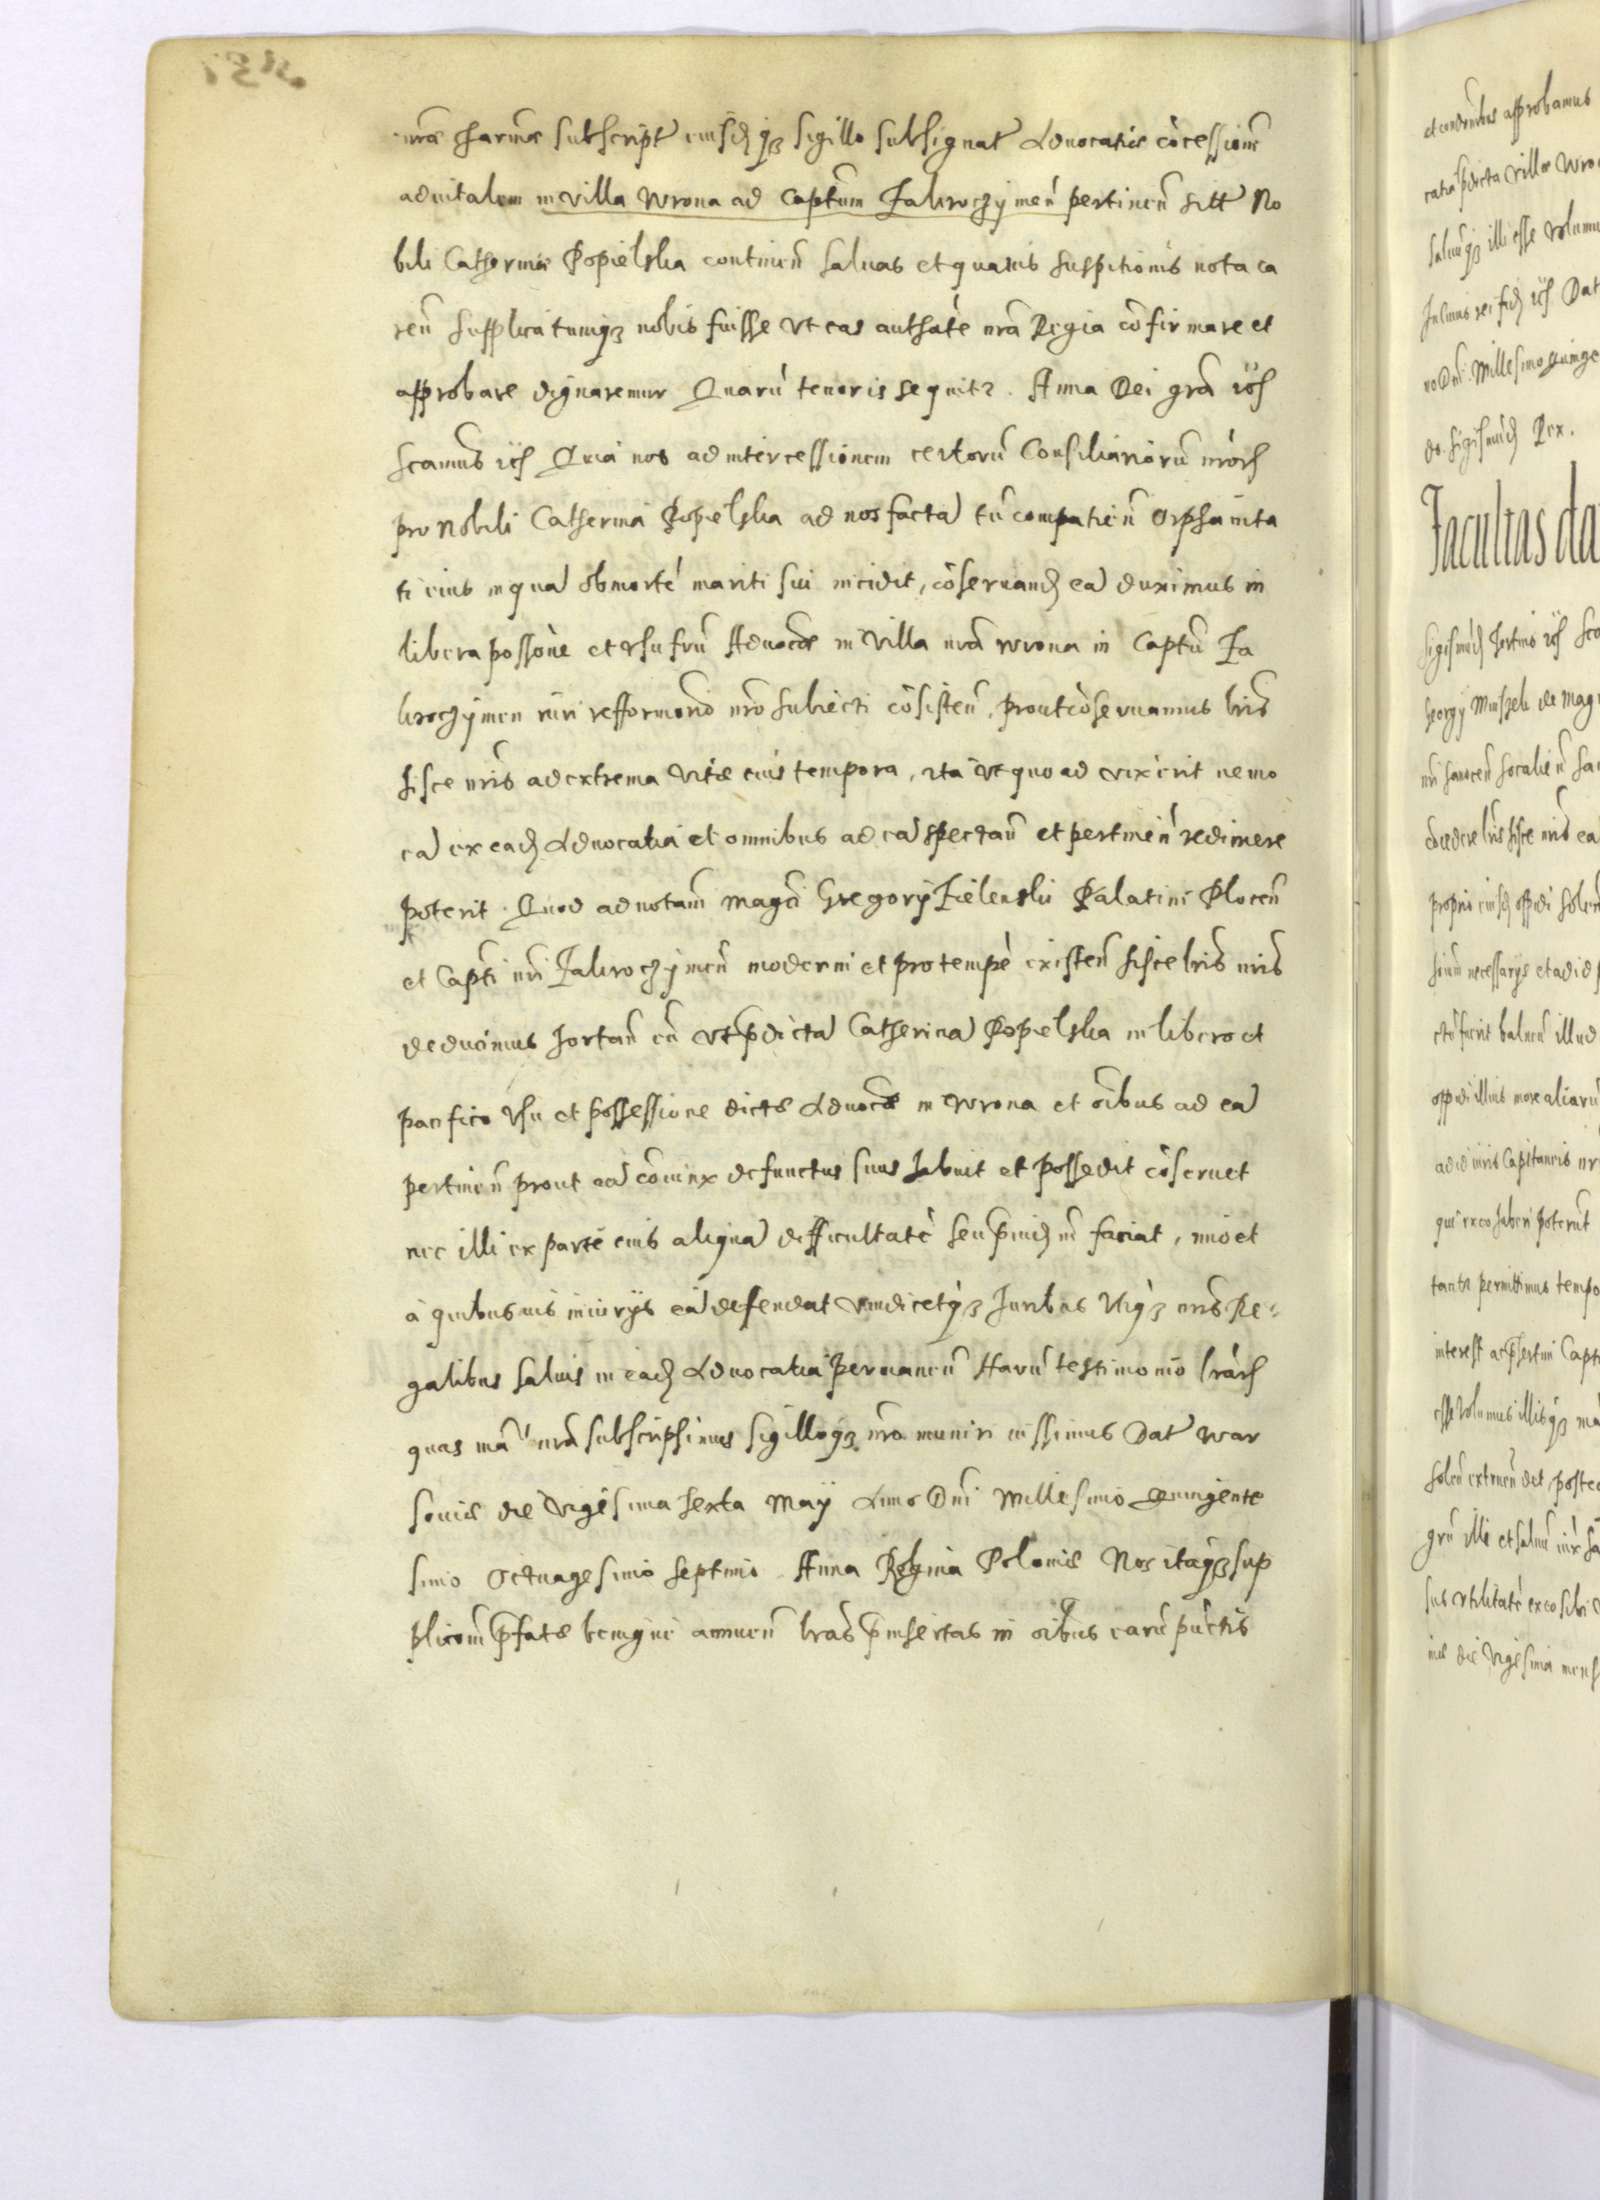 nrae charmae subscript eiusdq3 sigillo subsignat Advocatiae cōcessionē
advitalem in villa Wrona ad Capteum Zakroczÿmeñ pertineñ sitt No
bili Catherinae Popielska contineñ salvas et quavis suspitionis nota ca
reñ supplicatumq3 nobis fuisse Vt eas authāte nrā Regia cōfirmare et
approbare dignaremur Quarū tenor is sequitr. Anna Dei grā
scamus Quia nos ad intercessionem certorū Consiliariorū nrōrꝫ
pro Nobili Catherina Popielska ad nos factā tū compatieñ orphanita
ti eius in quā ob mortē mariti sui incidit, cōservandꝫ eā duximus in
libera possōne et vsufrū Advocāe in Villa nrā Wrona in Captū Za
kroczÿmeñ iuri refformorō nro subiecti cōsisteñ, prout cōservamus lris
hisce nris ad extrema vitae eius tempora, ita vt quoad vixerit nemo
eā ex eadꝫ Advocatia et omnibus ad eā spectañ et pertineñ redimere
poterit. Quod ad notam Magci Gregorÿ Zielenski Palatini Ploceñ
et Capti nri Zakroczÿmeñ moderni et pro tempē existeñ hisce lris nris
deducimus hortañ eū vt pdictā Catherinā Popielska in libero et
pacifico vsu et possessione dictae Advocāe in Wrona et oībus ad eā
pertineñ prout eā coniux defunctus suus habuit et possedit cōservet
nec illi ex parte eius aliquā difficultatē seu pniudꝫ faciat, imo et
a quibusvis iniurÿs eā defendat vindicetq3 Iuribus nris Re-
galibus salvis in eadꝫ Advocatia permaneñ Harū testimonio lrarꝫ
quas manu nrā subscripsimus sigilloq3 nro muniri iussimus Dat War
soviae die Vigesima sexta Maÿ Anno Dni Millesimo Quingente
simo Octuagesimo septimo. Anna Regina Poloniae Nos itaq3 sup
plicōni pfatae benigne annueñ lras pinsertas in oībus earū pūctis
et condnibus approbamus
catia pdicta villae Wro
salvuq3 illi esse volumus
In cuius rei fidꝫ Dat
no Dni Millesimo quinge
do. Sigismudꝫ Rex.
Facultas da
Sigismudꝫ Tertius
Georgÿ Mniszek de Mag
nri Sanoceñ Socalieñ Sa
cōcedere lris hisce nris ea
proprio eiusdꝫ oppidi
necessarÿs et ad id
fuerit balneū illud
oppidi illius more aliarū
ad id iuris Capitaneis nr
qui ex eo haberi poterūt
tantr permittimus tempo
interest ac psertim Capt
esse volumus illisq3 mā
poste
grū illi et salvū
sus vtilitatē ex eo sibi
nis die Vigesima mens